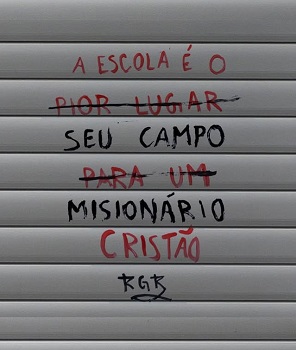 A ESCOLA É O
PIOR LUGAR
SEU CAMPO
PARA UM
MISIONÁRIO
CRISTÃO
RGR